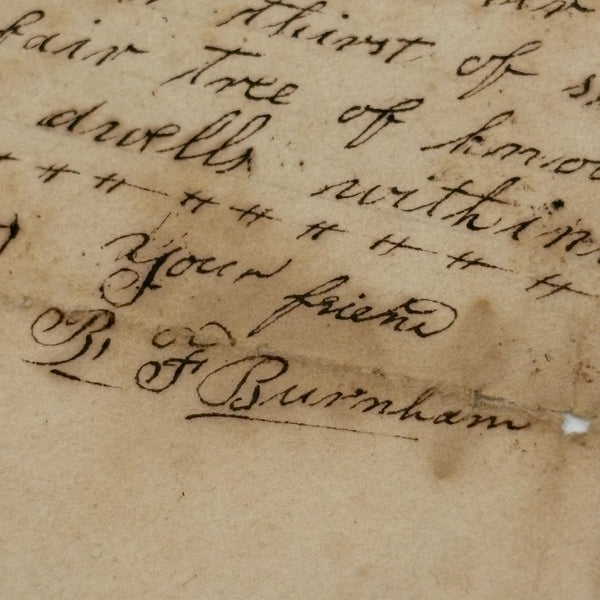 thirst of
fair tree of
dwells within
Your friend
B. F Burnham